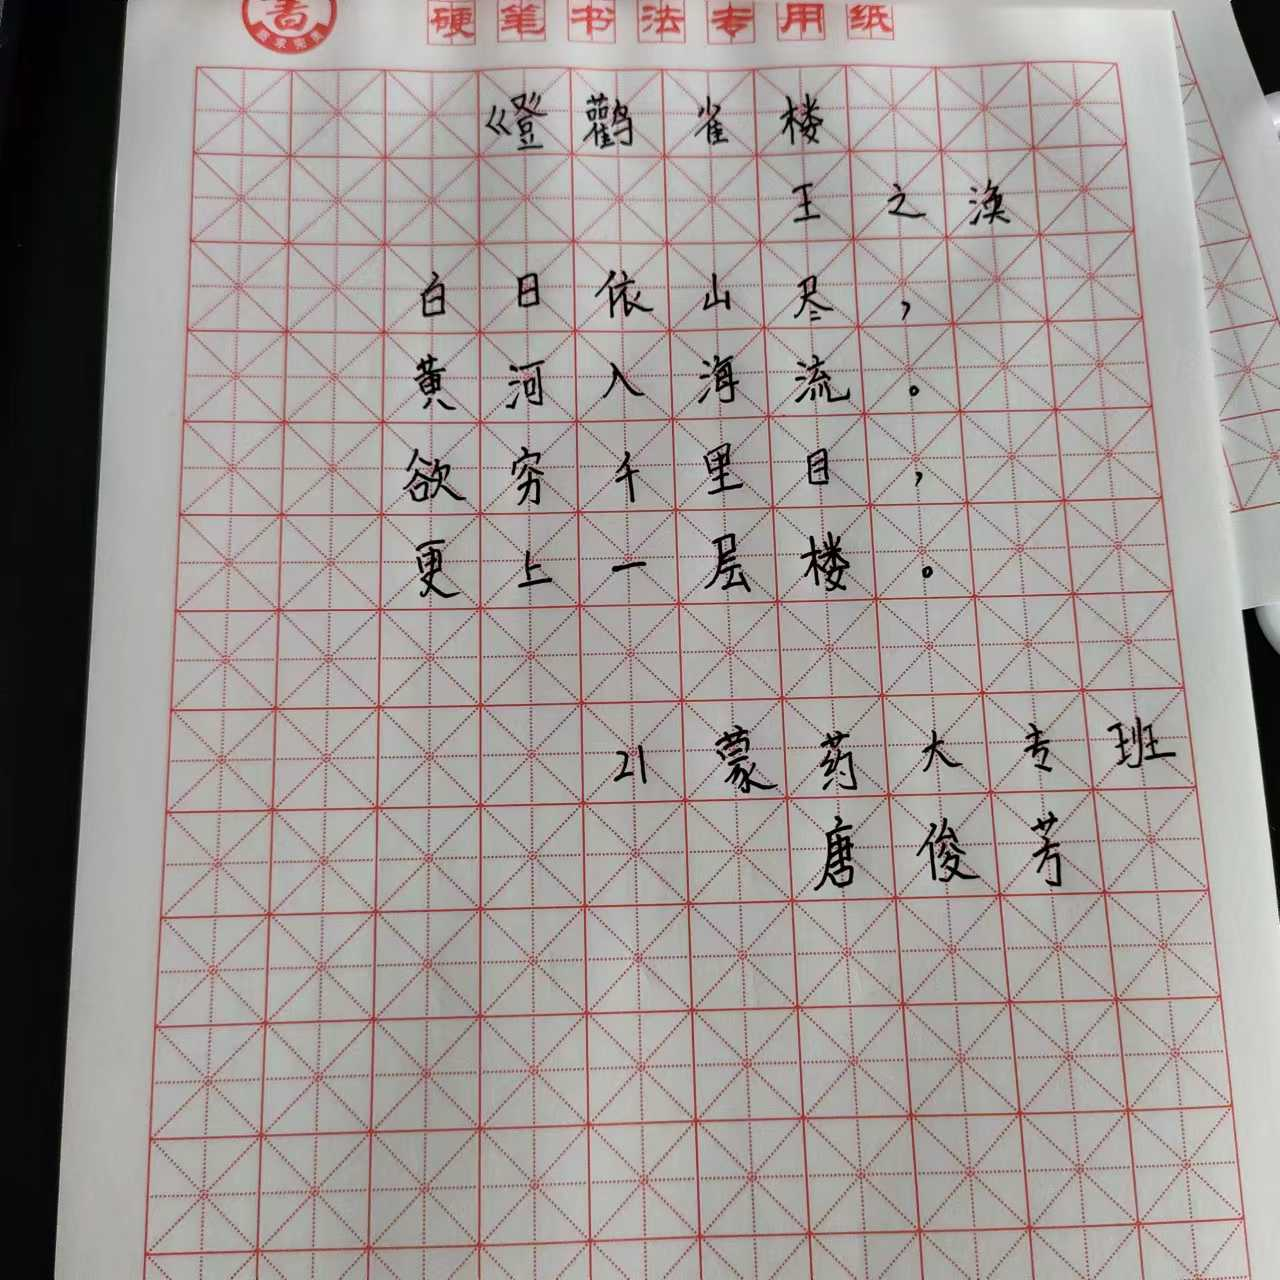 書
硬笔书法专用纸
《登鹳雀楼
王之涣
白日依山尽，
黄河入海流。
欲穷千里目，
更上一层楼。
21蒙药大专班
唐俊芳